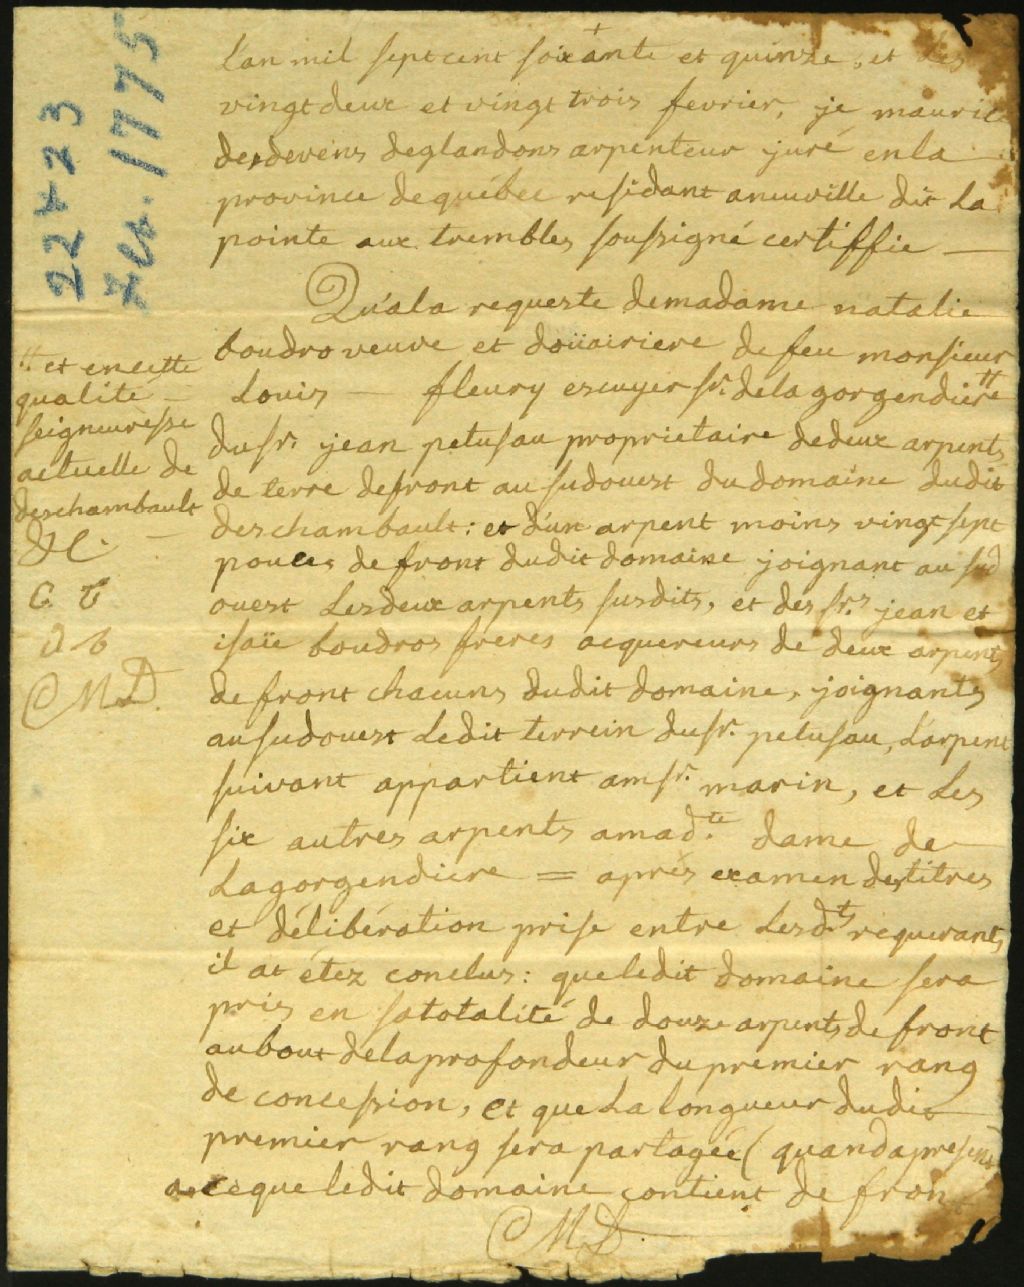 22 & 23
fev. 1775
L'an mil sept cent soixante et quinze, et Les
vingt deux et vingt trois fevrier, je maurice
desdevens deglandons arpenteur juré en la
province de québec residant aneuville dit La
pointe aux trembles soussigné certiffie —
Qu'ala requeste de madame natalie
boudro veuve et doüairiere de feu monsieur
Louis — fleury escuyer sr. de la gorgendiere #
du sr. jean petusau proprietaire de deux arpents
de terre de front au sudouest du domaine dudit
deschambault: et d'un arpent moins vingt sept
pouces de front dudit domaine joignant au sud
ouest Les deux arpents susdits, et des srs. jean et
isaïe boudros freres acquereurs de deux arpents
de front chacuns dudit domaine, joignants
au sudouest Ledit terrein du sr. petusau, L'arpent
suivant appartient a msr. marin, et Les
six autres arpents a mad.te dame de
Lagorgendiere = aprés examen des titres
et délibération prise entre Lesd.ts requerants
il at étez conclus: que ledit domaine sera
pris en sa totalité de douze arpents de front
au bout de la profondeur du premier rang
de concession, et que La longueur dudit
premier rang sera partagée (quand a present
a ce que ledit domaine contient de front
CMD.
# et en cette
qualité —
seigneuresse
actuelle de
deschambault
&c. —
C. T
D. B
CMD.